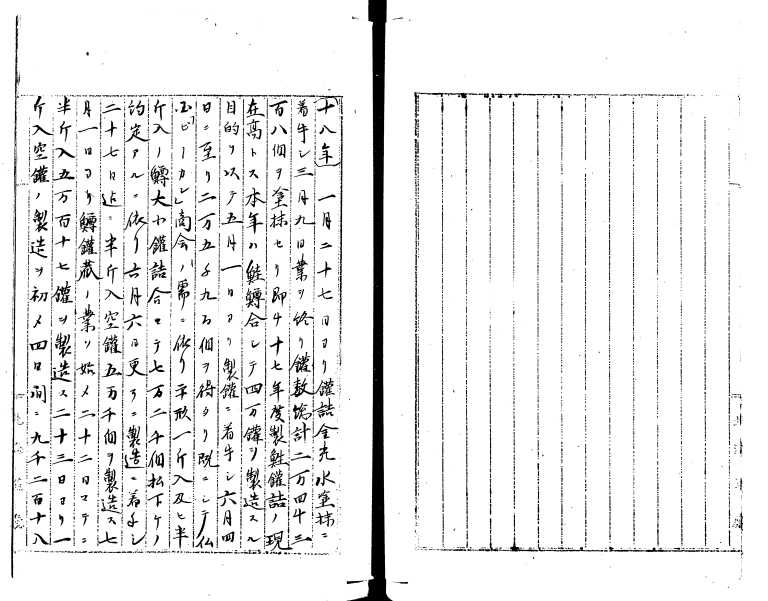 十八年 一月二十七日ヨリ鑵詰金光水塗抹ニ
着手シ三月九日業ヲ終リ鑵数総計二万四千三
百八個ヲ塗抹セリ即チ十七年度製鮭鑵詰ノ現
在高トス本年ハ鮭鱒合シテ四万鑵ヲ製造スル
目的ヲ以テ五月一日ヨリ製鑵ニ着手シ六月四
日ニ至リ二万五千九百個ヲ得タリ既ニシテ仏
国「ビーカン」商会ノ需ニ依リ平形一斤入及ヒ半
斤入ノ鱒大小鑵詰合セテ七万二千個払下ケノ
約定アルニ依リ六月六日更ラニ製造ニ着手シ
二十七日迄ニ半斤入空鑵五万千個ヲ製造ス七
月一日ヨリ鱒鑵蔵ノ業ヲ始メ二十二日マテニ
半斤入五万百十七鑵ヲ製造ス二十三日ヨリ一
斤入空鑵ノ製造ヲ初メ四日間ニ九千二百十八